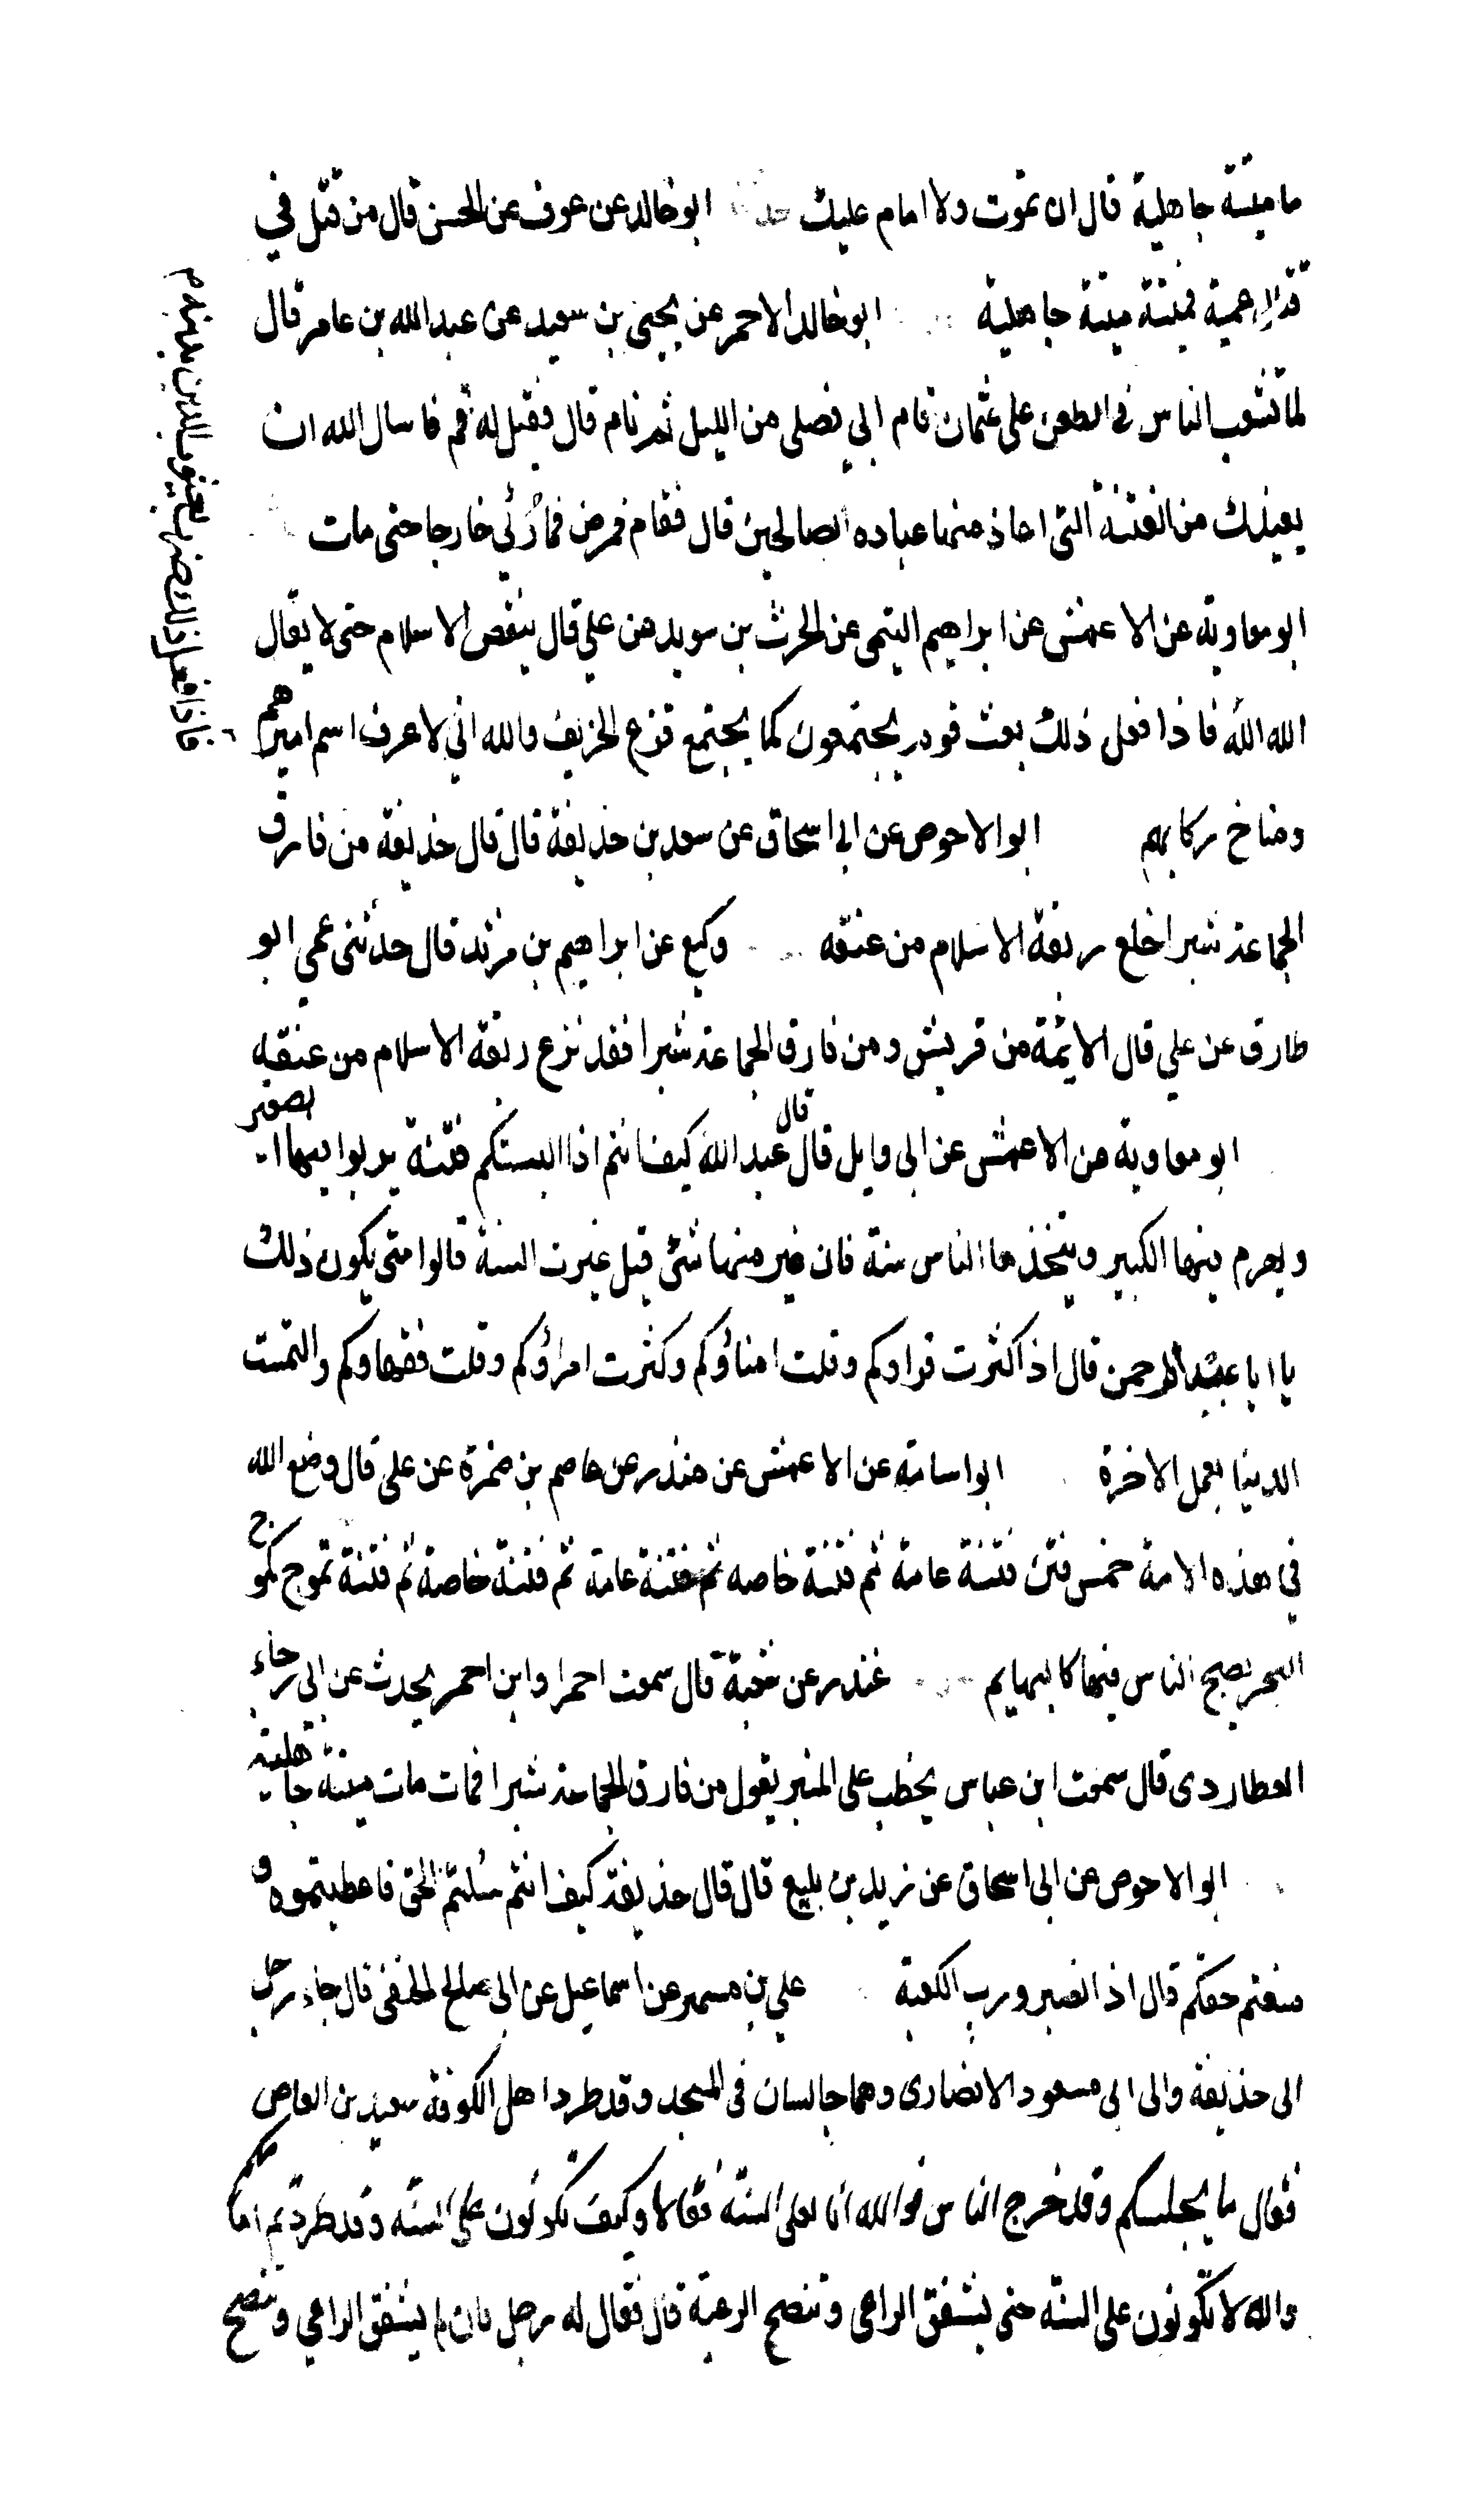 ما ميتة جاهلية قال ان تموت ولا امام عليك حد ابو خالد عن عوف عن الحسن قال من قتل في
قتال عمية فميتته ميتة جاهلية ابو خالد الاحمر عن يحيى بن سعيد عن عبد الله بن عامر قال
لما تشعب الناس في الطعن على عثمان قام ابي فصلى من الليل ثم نام قال فقيل له قم فاسال الله ان
يعيذك من الفتنة التي اعاذ منها عباده الصالحين قال فقام فمرض فما رُئي خارجا حتى مات
ابو معاوية عن الاعمش عن ابراهيم التيمي عن الحرث بن سويد عن علي قال ينقص الاسلام حتى لا يقال
الله الله فاذا فعل ذلك بعث قوم يجتمعون كما يجتمع قزع الخريف والله اني لاعرف اسم اميرهم
ومناخ ركابهم ابو الاحوص عن ابي اسحاق عن سعد بن حذيفة قال قال حذيفة من فارق
الجماعة شبرا خلع ربقة الاسلام من عنقه وكيع عن ابراهيم بن مرثد قال حدثني عمي ابو
طارق عن علي قال الايمة من قريش ومن فارق الجماعة شبرا فقد نزع ربقة الاسلام من عنقه
ابو معاوية عن الاعمش عن ابي وايل قال قال عبد الله كيف انتم اذا البستكم فتنة يربوا فيها الصغير
ويهرم فيها الكبير ويتخذها الناس سنة فان غير منها شئ قيل غيرت السنة قالوا متى يكون ذلك
يا ابا عبد الرحمن قال اذا كثرت قراوكم وقلت امناؤكم وكثرت امراؤكم وقلت فقهاوكم والتمست
الدنيا بعمل الاخرة ابو اسامة عن الاعمش عن منذر عن عاصم بن ضمرة عن علي قال وضع الله
في هذه الامة خمس فتن فتنة عامة ثم فتنة خاصه ثم فتنة عامة ثم فتنة خاصة ثم فتنة تموج كموج
البحر يصبح الناس فيها كالبهايم غندر عن شعبة قال سمعت احمرا وابن احمر يحدث عن ابي رجاء
العطاردى قال سمعت ابن عباس يخطب على المنبر يقول من فارق الجماعة شبرا فمات مات ميتة جاهلية
ابو الاحوص عن ابي اسحاق عن زيد بن يثيع قال قال حذيفة كيف انتم سُئلتم الحق فاعطيتموه و
منعتم حقكم قال اذا نصبر ورب الكعبة علي بن مسهر عن اسماعيل عن ابي صالح الحنفي قال جاء رجل
الى حذيفة والى ابي مسعود الانصارى وهما جالسان في المسجد وقد طرد اهل الكوفة سعيد بن العاص
فقال ما يجلسكم وقد خرج الناس فوالله انا لعلى السنة فقالا وكيف تكونون على السنة وقد طردتم امامكم
والله لا تكونون على السنة حتى يشفق الراعى وتنصح الرعية قال فقال له رجل فان لم يشفق الراعي وتنصح
فاذا فعل ذلك ضرب يعسوب الدين بذنبه